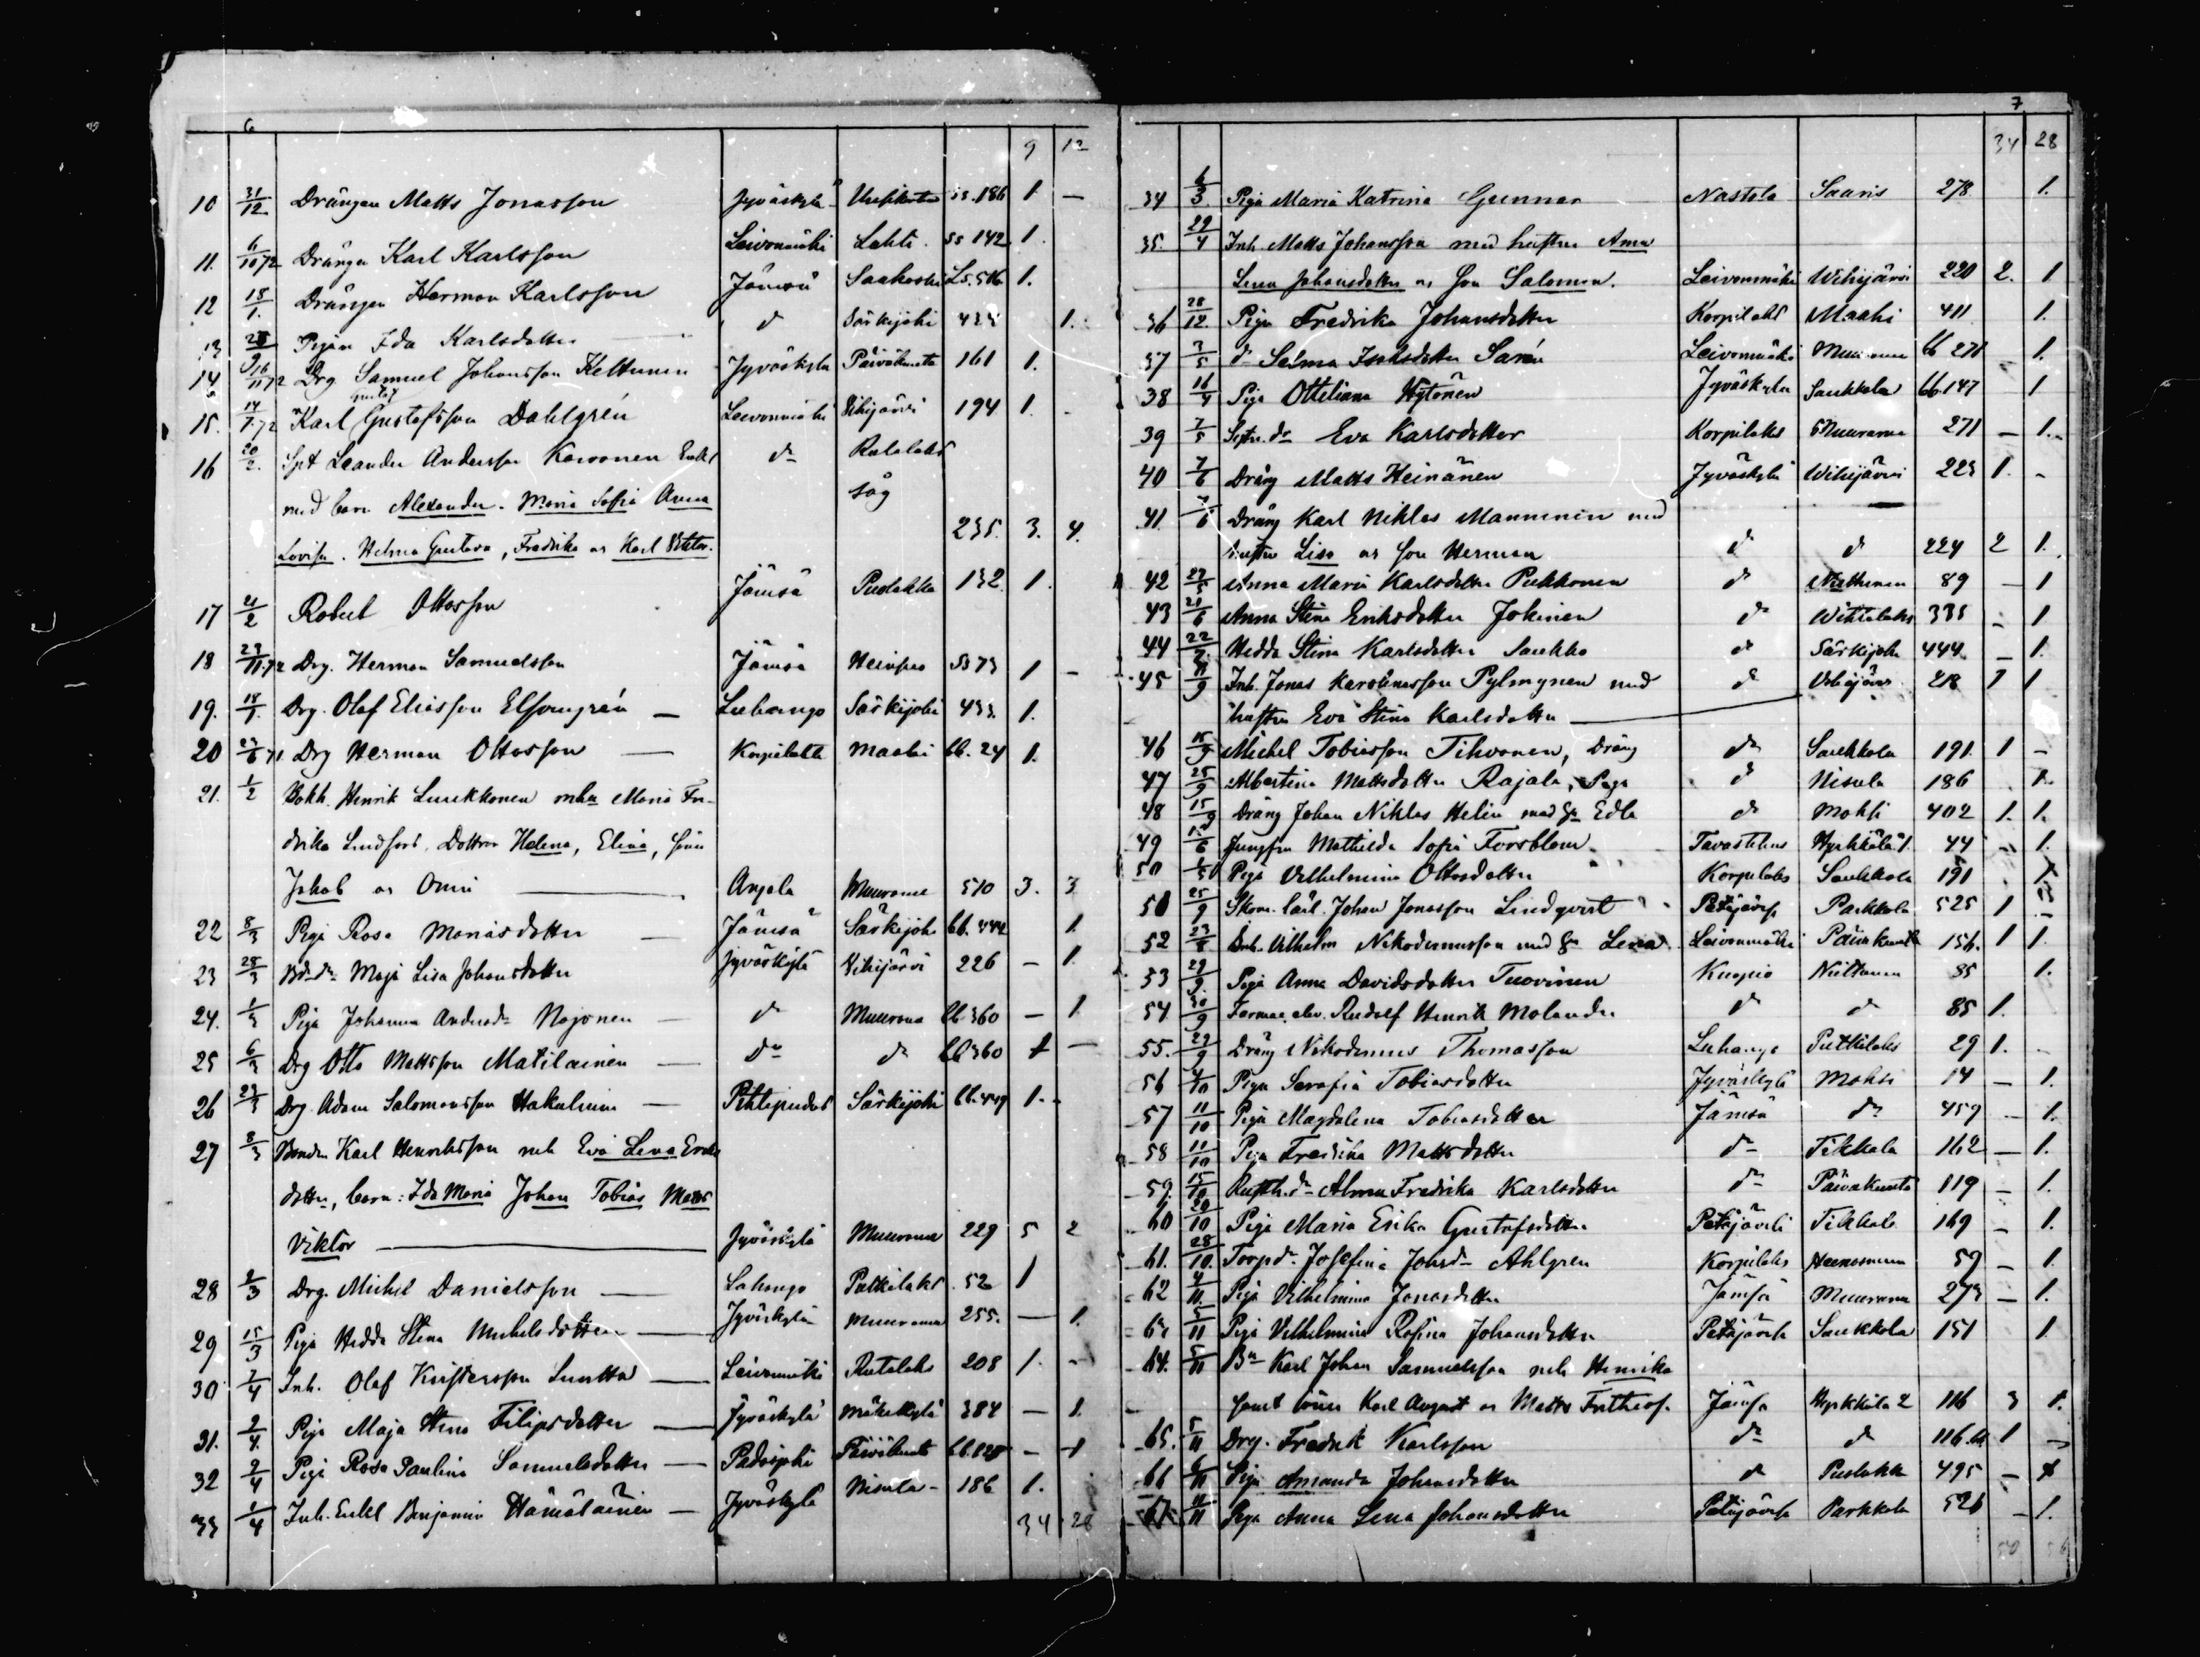 6
9 12
10 31/12 Drängen Matts Jonasson Jyväskylä ss. 186 1. —
11. 6/10 72 Drängen Karl Karlsson Leivonmäki Lahti. ss 142 1.
12 18/1. Drängen Herman Karlsson Jämsä Saakoski 1.
13 Pigan Ida Karlsdotter d Särkijoki 434 1.
14 16/11 72 Drg Samuel Johansson Kettunen Jyväskylä Päiväkunta 161 1.
15. 14/7. 72 Karl Gustaf Gustafsson Dahlgrén Leivonmäki Vihijärvi 194 1. -
16 20/2. Spt Leander Andersson Korvonen Enkl dn Rutalaks
med barn Alexander. Maria Sofia Anna såg
Lovisa. Helma Gustava, Fredrika os Karl Viktor. 235. 3. 4.
17 21/2 Robert Ottosson Jämsä Puolakka 132 1.
18 23/11.72 Drg. Herman Samuelsson Jämsä 73 1 -
19. 18/1. Drg. Olof Eliasson Elfvengrén — Luhango Särkijoki 433. 1.
20 23/6 71 Drg Herman Ottosson — Korpilaks Maahi bb. 24 1.
21. 1/2 Bokh. Henrik Luukkonen mhu Maria Fre-
drika Lindfors. Dottrar Helena, Elina, Söner
Jakob os Onni — Anjala Muurame 510 3. 3
22 8/3 Piga Rosa Mariasdotter — Jämsä Särkijoki bb. 444 1.
23 28/3 Bdr dn Maja Lisa Johansdotter Jyväskylä Vihijärvi 226 — 1.
24. 1/3 Piga Johanna Andersdr Nojonen — dn Muurame bb 360 — 1.
25 6/3 Drg Otto Mattsson Matilainen — dn dn bb 360 1 —
26 23/3 Drg. Adam Salomonsson Hakulinen — Pihtipudas Särkijoki bb. 449 1. -
27 8/3 Bonden Karl Henriksson mh Eva Lena Eriks
dotter, barn: Ida Maria Johan Tobias Matts
Viktor — Jyväskylä Muurame 229 5 2
28 2/3 Drg. Michel Danielsson — Luhango Putkilaks 52 1
29 15/3 Piga Hedda Stina Michelsdotter — Jyväskylä Muurame 255. — 1.
30 7/4 Inh. Olof Kristersson — Leivonmäki Rutalaks 208 1. -
31. 2/4. Piga Maja Stina Filipsdotter — Jyväskylä Mäkikylä 384 — 1.
32 2/4 Piga Rosa Paulina Samuelsdotter — Padasjoki Päiväkunta — 1
33 1/4 Inh. Enkl Benjamin Hämäläinen — Jyväskylä Nisula - 186 1.
34 28
7
34 28
34 6/3. Piga Maria Katrina Gunner Nastola Saaris 278 1.
35. 29/4 Inh. Matts Johansson med hustru Anna
Lena Johansdotter os Son Salomon. Leivonmäki Wihijärvi 220 2. 1
36 28/12. Piga Fredrika Johansdotter Korpilaks Maahi 411 1.
37 3/5 dn Selma Isaksdotter Sarén Leivonmäki Muurame bb 271 - 1.
38 16/4 Piga Otteliana Hytönen Jyväskylä Saukkola bb. 147 1
39 7/5 dr Eva Karlsdotter Korpilaks Muurame 271 — 1.
40 7/6 Dräng Matts Heinänen Jyväskylä Wihijärvi 223 1. -
41. 7/6 Dräng Karl Niklas Manninen med
hustru Lisa os Son Herman d d 224 2 1.
42 27/5 Anna Maria Karlsdotter Pukkonen d Niittunen 89 — 1
43 21/6 Anna Stina Eriksdotter Jokinen dn Wihtalaks 335 - 1
44 22/7. Hedda Stina Karlsdotter Saukko d Särkijoki 444 - 1.
45 11/9 Inh. Jonas Karolinasson Pylmynen med d Vihijärvi 218 1 1
hustru Eva Stina Karlsdotter —
46 15/9 Michel Tobiasson Tihvonen, Dräng dn Saukkola 191. 1 -
47 25/9 Albertina Mattsdotter Rajala, Piga d Nisula 186 1.
48 15/9 Dräng Johan Niklas Helin med hu Edla d Mahli 402 1. 1.
49 15/6 Jungfru Mathilda Sofia Forsblom Tavastehus Hyrkkälä 1. 44 - 1.
50 1/5 Piga Vilhelmina Ottosdotter Korpilaks Saukkola 191 1.
51 25/9 Skom. lärl. Johan Jonasson Lindqvist Petäjäves Parkkola 525 1 -
52 23/8 Vilhelm Nikodemusson med hu Lena Leivonmäki Päiväkunta 156. 1 1.
53 29/9. Piga Anna Davidsdotter Tuovinen Kuopio Niittunen 85 1.
54 30/9 Farmac. elev. Rudolf Henrik Molander d d 85 1.
55. 29/9 Dräng Nikodemus Thomasson Luhango Putkilaks 29 1. -
56 4/10 Piga Serafia Tobiasdotter Jyväskylä Mahli 14 — 1.
57 11/10 Piga Magdalena Tobiasdotter Jämsä dn 459 - 1.
58 11/10 Piga Fredrika Mattsdotter dn Tikkala 162 — 1.
59. 15/10 dn Alma Fredrika Karlsdotter dn Päiväkunta 119 - 1.
60 20/10 Piga Maria Erika Gustafsdotter Petäjäves Tikkala 169 - 1.
61. 28/10. Torpdr Josefina Johsdr Ahlgren Korpilaks 59 - 1.
62 4/11. Piga Vilhelmina Jonasdotter Jämsä Muurame 273 — 1.
63. 5/11 Piga Vilhelmina Rosina Johansdotter Petäjäves Saukkola 151 1.
64. 5/11 Bn Karl Johan Samuelsson mh Henrika
samt söner Karl August os Matts Frithiof. Jämsä Hyrkkälä 2 116 3 1.
65. 5/11 Drg. Fredrik Karlsson dn d 116. 1 -
66 6/11 Piga Amanda Johansdotter d Puolakka 495 — 1
67 11/11 Piga Anna Lena Johansdotter Petäjäves Parkkola 526 - 1.
50 56